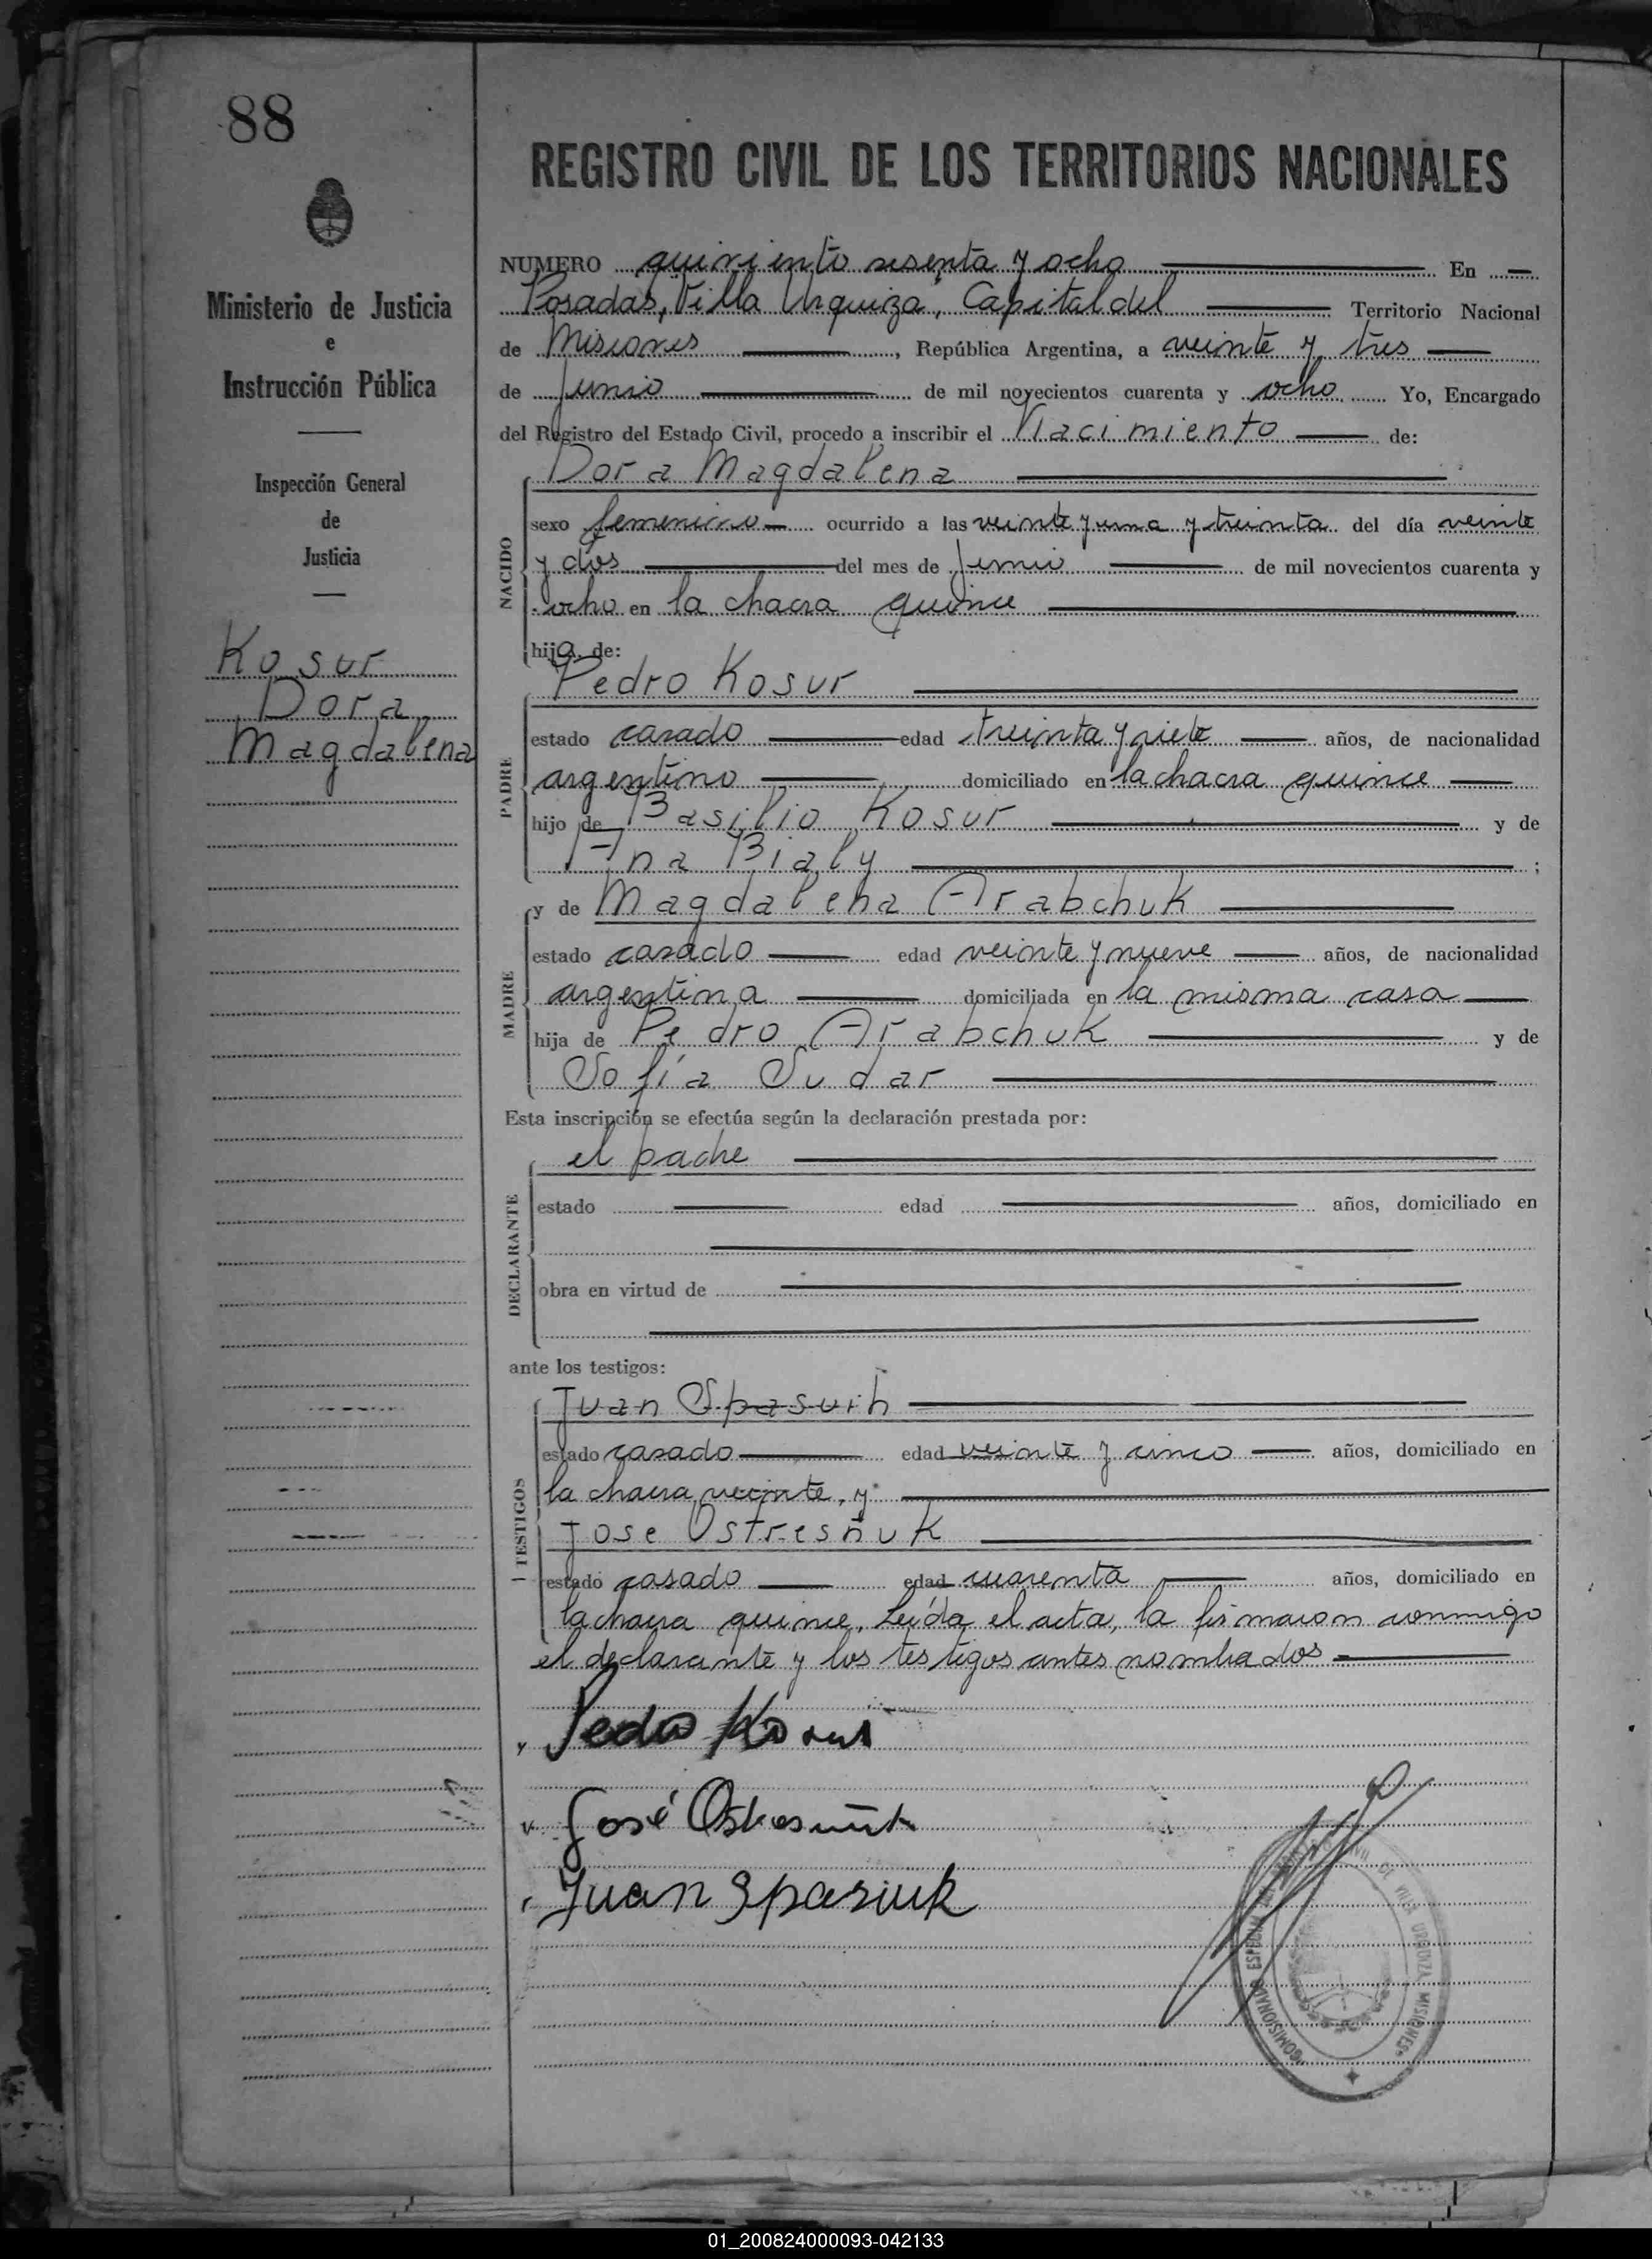 88
REGISTRO CIVIL DE LOS TERRITORIOS NACIONALES
Ministerio de Justicia
e
Instrucción Pública
Inspección General
de
Justicia
Kosur
Dora
Magdalena
NUMERO quiniento sesenta y ocho En
Posadas, Villa Urquiza, Capital del Territorio Nacional
de Misiones, República Argentina, a veinte y tres
de Junio de mil novecientos cuarenta y ocho Yo, Encargado
del Registro del Estado Civil, procedo a inscribir el Nacimiento de:
NACIDO
Dora Magdalena
sexo femenino ocurrido a las veinte y una y treinta del día veinte
y dos del mes de Junio de mil novecientos cuarenta y
ocho en la chacra quince
hija de:
PADRE
Pedro Kosur
estado casado edad treinta y siete años, de nacionalidad
argentino domiciliado en la chacra quince
hijo de Basilio Kosur y de
Ana Bialy ;
MADRE
y de Magdalena Arabchuk
estado casado edad veinte y nueve años, de nacionalidad
argentina domiciliada en la misma casa
hija de Pedro Arabchuk y de
Sofía Sudar
Esta inscripción se efectúa según la declaración prestada por:
DECLARANTE
el padre
estado edad años, domiciliado en
obra en virtud de
ante los testigos:
TESTIGOS
Juan
estado casado edad veinte y cinco años, domiciliado en
la chacra veinte, y
Jose Ostresñuk
estado casado edad cuarenta años, domiciliado en
la chacra quince. Leída el acta, la firmaron conmigo
el declarante y los testigos antes nombrados
Pedro Kosur
José Ostresñuk
Juan Spasiuk
COMISIONADO ESPECIAL DEL REGISTRO CIVIL DE VILLA URQUIZA MISIONES
01_200824000093-042133